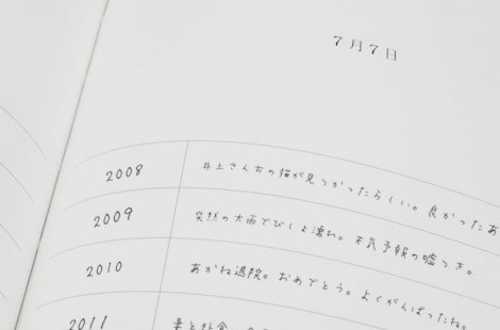 7月7日
2008 井上さん方の猫が見つかったらしい。良かったあ
2009 突然の大雨でびしょ濡れ。天気予報の嘘つき。
2010 あかね退院。おめでとう。よくがんばったね。
2011